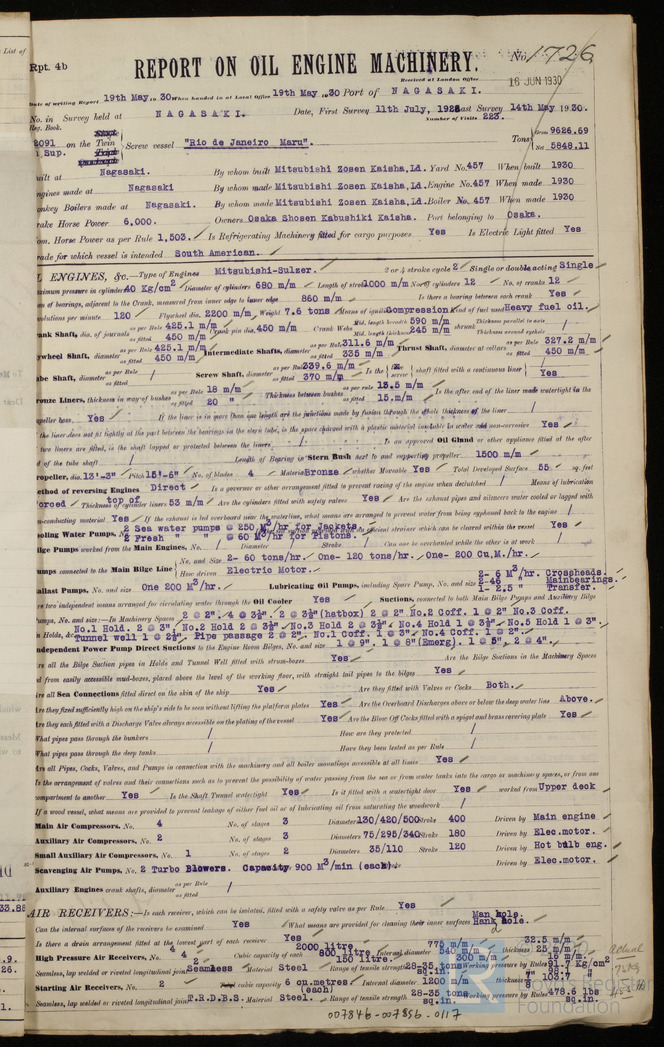 Rpt. 4b
REPORT ON OIL ENGINE MACHINERY.
No. 1726
Received at London Office 16 JUN 1930
Date of writing Report 19th May, 30 When handed in at Local Office 19th May, 30 Port of NAGASAKI.
No. in Survey held at NAGASAKI. Date, First Survey 11th July, 1928 Last Survey 14th May 1930.
Reg. Book. Number of Visits 223.
2091 on the Twin Screw vessel "Rio de Janeiro Maru". Tons Gross 9626.69
Sup. Net 5848.11
Built at Nagasaki. By whom built Mitsubishi Zosen Kaisha, Ld. Yard No. 457 When built 1930
Engines made at Nagasaki By whom made Mitsubishi Zosen Kaisha, Ld. Engine No. 457 When made 1930
Donkey Boilers made at Nagasaki. By whom made Mitsubishi Zosen Kaisha, Ld. Boiler No. 457 When made 1930
Brake Horse Power 6,000. Owners Osaka Shosen Kabushiki Kaisha. Port belonging to Osaka.
Nom. Horse Power as per Rule 1,503. Is Refrigerating Machinery fitted for cargo purposes Yes Is Electric Light fitted Yes
Trade for which vessel is intended South American.
OIL ENGINES, &c.—Type of Engines Mitsubishi-Sulzer. 2 or 4 stroke cycle 2 Single or double acting Single
Maximum pressure in cylinders 40 Kg/cm² Diameter of cylinders 680 m/m Length of stroke 1000 m/m No. of cylinders 12 No. of cranks 12
Span of bearings, adjacent to the Crank, measured from inner edge to inner edge 860 m/m Is there a bearing between each crank Yes
Revolutions per minute 120 Flywheel dia. 2200 m/m Weight 7.6 tons Means of ignition Compression Kind of fuel used Heavy fuel oil.
Crank Shaft, dia. of journals as per Rule 425.1 m/m as fitted 450 m/m Crank pin dia. 450 m/m Crank Webs Mid. length breadth 590 m/m Mid. length thickness 245 m/m shrunk Thickness parallel to axis / Thickness around eyehole
Flywheel Shaft, diameter as per Rule 425.1 m/m as fitted 450 m/m Intermediate Shafts, diameter as per Rule 311.6 m/m as fitted 335 m/m Thrust Shaft, diameter at collars as per Rule 327.2 m/m as fitted 450 m/m
Tube Shaft, diameter as per Rule / as fitted Screw Shaft, diameter as per Rule 339.6 m/m as fitted 370 m/m Is the screw shaft fitted with a continuous liner Yes
Bronze Liners, thickness in way of bushes as per Rule 18 m/m as fitted 20 " Thickness between bushes as per rule 13.5 m/m as fitted 15. m/m Is the after end of the liner made watertight in the
propeller boss. Yes If the liner is in more than one length are the junctions made by fusion through the whole thickness of the liner /
If the liner does not fit tightly at the part between the bearings in the stern tube, is the space charged with a plastic material insoluble in water and non-corrosive Yes
If two liners are fitted, is the shaft lapped or protected between the liners / Is an approved Oil Gland or other appliance fitted at the after
end of the tube shaft / Length of Bearing in Stern Bush next to and supporting propeller 1500 m/m
Propeller, dia. 13'-3" Pitch 15'-6" No. of blades 4 Material Bronze whether Moveable Yes Total Developed Surface 55 sq. feet
Method of reversing Engines Direct Is a governor or other arrangement fitted to prevent racing of the engine when declutched / Means of lubrication
Forced top of Thickness of cylinder liners 53 m/m Are the cylinders fitted with safety valves Yes Are the exhaust pipes and silencers water cooled or lagged with
non-conducting material Yes If the exhaust is led overboard near the waterline, what means are arranged to prevent water from being syphoned back to the engine /
Cooling Water Pumps, No. 2 Sea water pumps @ 250 M³/hr for Jackets. 2 Fresh " " @ 60 M³/hr for Pistons. sufficient strainer which can be cleared within the vessel Yes
Bilge Pumps worked from the Main Engines, No. / Diameter / Stroke / Can one be overhauled while the other is at work /
Pumps connected to the Main Bilge Line No. and Size 2- 60 tons/hr. One- 120 tons/hr. One- 200 Cu.M./hr.
How driven Electric Motor. 2- 6 M³/hr. Crossheads.
Ballast Pumps, No. and size One 200 M³/hr. Lubricating Oil Pumps, including Spare Pump, No. and size 2-46 " Mainbearings.
1- 2.5 " Transfer.
Are two independent means arranged for circulating water through the Oil Cooler Yes Suctions, connected to both Main Bilge Pumps and Auxiliary Bilge
Pumps, No. and size:—In Machinery Spaces 2 @ 2". 4 @ 3½". 2 @ 3½"(hatbox) 2 @ 2" No.2 Coff. 1 @ 2" No.3 Coff.
In Holds, &c. No.1 Hold. 2 @ 3", No.2 Hold 2 @ 3½", No.3 Hold 2 @ 3½", No.4 Hold 1 @ 3½" No.5 Hold 1 @ 3".
Tunnel well 1 @ 2½". Pipe passage 2 @ 2". No.1 Coff. 1 @ 3" No.4 Coff. 1 @ 2".
Independent Power Pump Direct Suctions to the Engine Room Bilges, No. and size 1 @ 9". 1 @ 8"(Emerg). 1 @ 5", 2 @ 4".
Are all the Bilge Suction pipes in Holds and Tunnel Well fitted with strum-boxes Yes Are the Bilge Suctions in the Machinery Spaces
led from easily accessible mud-boxes, placed above the level of the working floor, with straight tail pipes to the bilges Yes
Are all Sea Connections fitted direct on the skin of the ship Yes Are they fitted with Valves or Cocks Both.
Are they fixed sufficiently high on the ship's side to be seen without lifting the platform plates Yes Are the Overboard Discharges above or below the deep water line Above.
Are they each fitted with a Discharge Valve always accessible on the plating of the vessel Yes Are the Blow Off Cocks fitted with a spigot and brass covering plate Yes
What pipes pass through the bunkers / How are they protected /
What pipes pass through the deep tanks / Have they been tested as per Rule /
Are all Pipes, Cocks, Valves, and Pumps in connection with the machinery and all boiler mountings accessible at all times Yes
Is the arrangement of valves and their connections such as to prevent the possibility of water passing from the sea or from water tanks into the cargo or machinery spaces, or from one
compartment to another Yes Is the Shaft Tunnel watertight Yes Is it fitted with a watertight door Yes worked from Upper deck
If a wood vessel, what means are provided to prevent leakage of either fuel oil or of lubricating oil from saturating the woodwork /
Main Air Compressors, No. 4 No. of stages 3 Diameters 130/420/500 Stroke 400 Driven by Main engine
Auxiliary Air Compressors, No. 2 No. of stages 3 Diameters 75/295/340 Stroke 180 Driven by Elec.motor.
Small Auxiliary Air Compressors, No. 1 No. of stages 2 Diameters 35/110 Stroke 120 Driven by Hot bulb eng.
Scavenging Air Pumps, No. 2 Turbo Blowers. Capacity 900 M³/min (each) Stroke Driven by Elec.motor.
Auxiliary Engines crank shafts, diameter as per Rule / as fitted
AIR RECEIVERS:—Is each receiver, which can be isolated, fitted with a safety valve as per Rule Yes
Can the internal surfaces of the receivers be examined Yes What means are provided for cleaning their inner surfaces Man hole. Hand hole.
Is there a drain arrangement fitted at the lowest part of each receiver Yes
High Pressure Air Receivers, No. 4 4 2 Cubic capacity of each 2000 litre. 800 litre. 150 litre. Internal diameter 775 m/m 540 m/m 300 m/m thickness 32.5 m/m 25 m/m 16 m/m.
Seamless, lap welded or riveted longitudinal joint Seamless Material Steel Range of tensile strength 28-35 tons sq.in. Working pressure by Rules 91.7 Kg/cm² 98.1 " 103.7 "
Starting Air Receivers, No. 2 Total cubic capacity 6 cu.metres (each) Internal diameter 1200 m/m thickness
Seamless, lap welded or riveted longitudinal joint T.R.D.B.S. Material Steel. Range of tensile strength 28-35 tons sq.in. Working pressure by Rules 478.6 lbs sq.in.
actual
Lloyd's Register
Foundation
007846-007856-0117